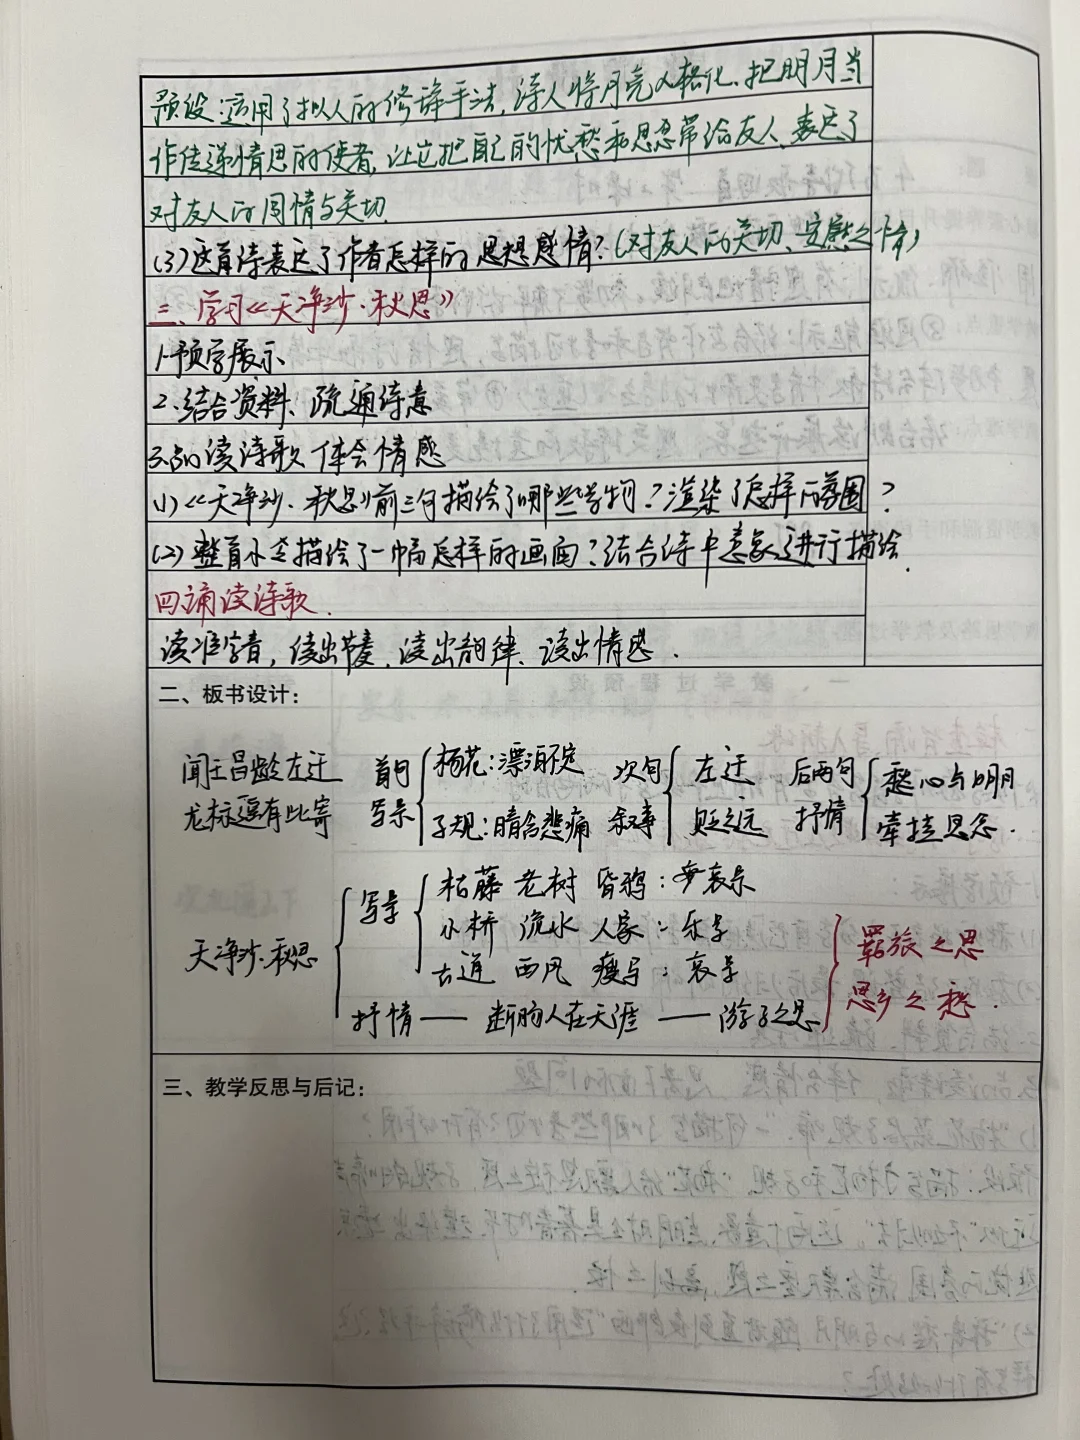 预设:运用了拟人的修辞手法,诗人将月亮人格化、把明月当
作传递情思的使者,让它把自己的忧愁和思念带给友人、表达了
对友人的同情与关切
(3)这首诗表达了作者怎样的思想感情?(对友人的关切、安慰之情)
三、学习《天净沙·秋思》
1.预学展示
2.结合资料、疏通诗意
3.品读诗歌 体会情感
(1)《天净沙·秋思》前三句描绘了哪些景物?渲染了怎样的氛围?
(2)整首小令描绘了一幅怎样的画面?结合诗中意象进行描绘.
四诵读诗歌.
读准字音,读出节奏,读出韵律、读出情感.
二、板书设计:
闻王昌龄左迁
龙标遥有此寄
首句
写景
杨花:漂泊不定
子规:暗含悲痛
次句
叙事
左迁
贬之远
后两句
抒情
愁心与明月
牵挂思念.
天净沙·秋思
写景
枯藤 老树 昏鸦:哀景
小桥 流水 人家:乐景
古道 西风 瘦马:哀景
抒情——断肠人在天涯——游子之思
羁旅之思
思乡之愁.
三、教学反思与后记: